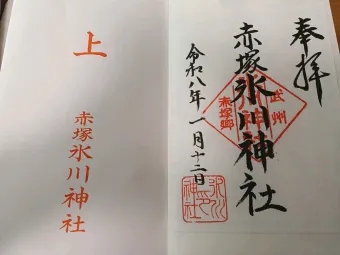 奉拝
赤塚氷川神社
令和八年一月十二日
武州
赤塚郷
氷川
神社
上
赤塚氷川神社